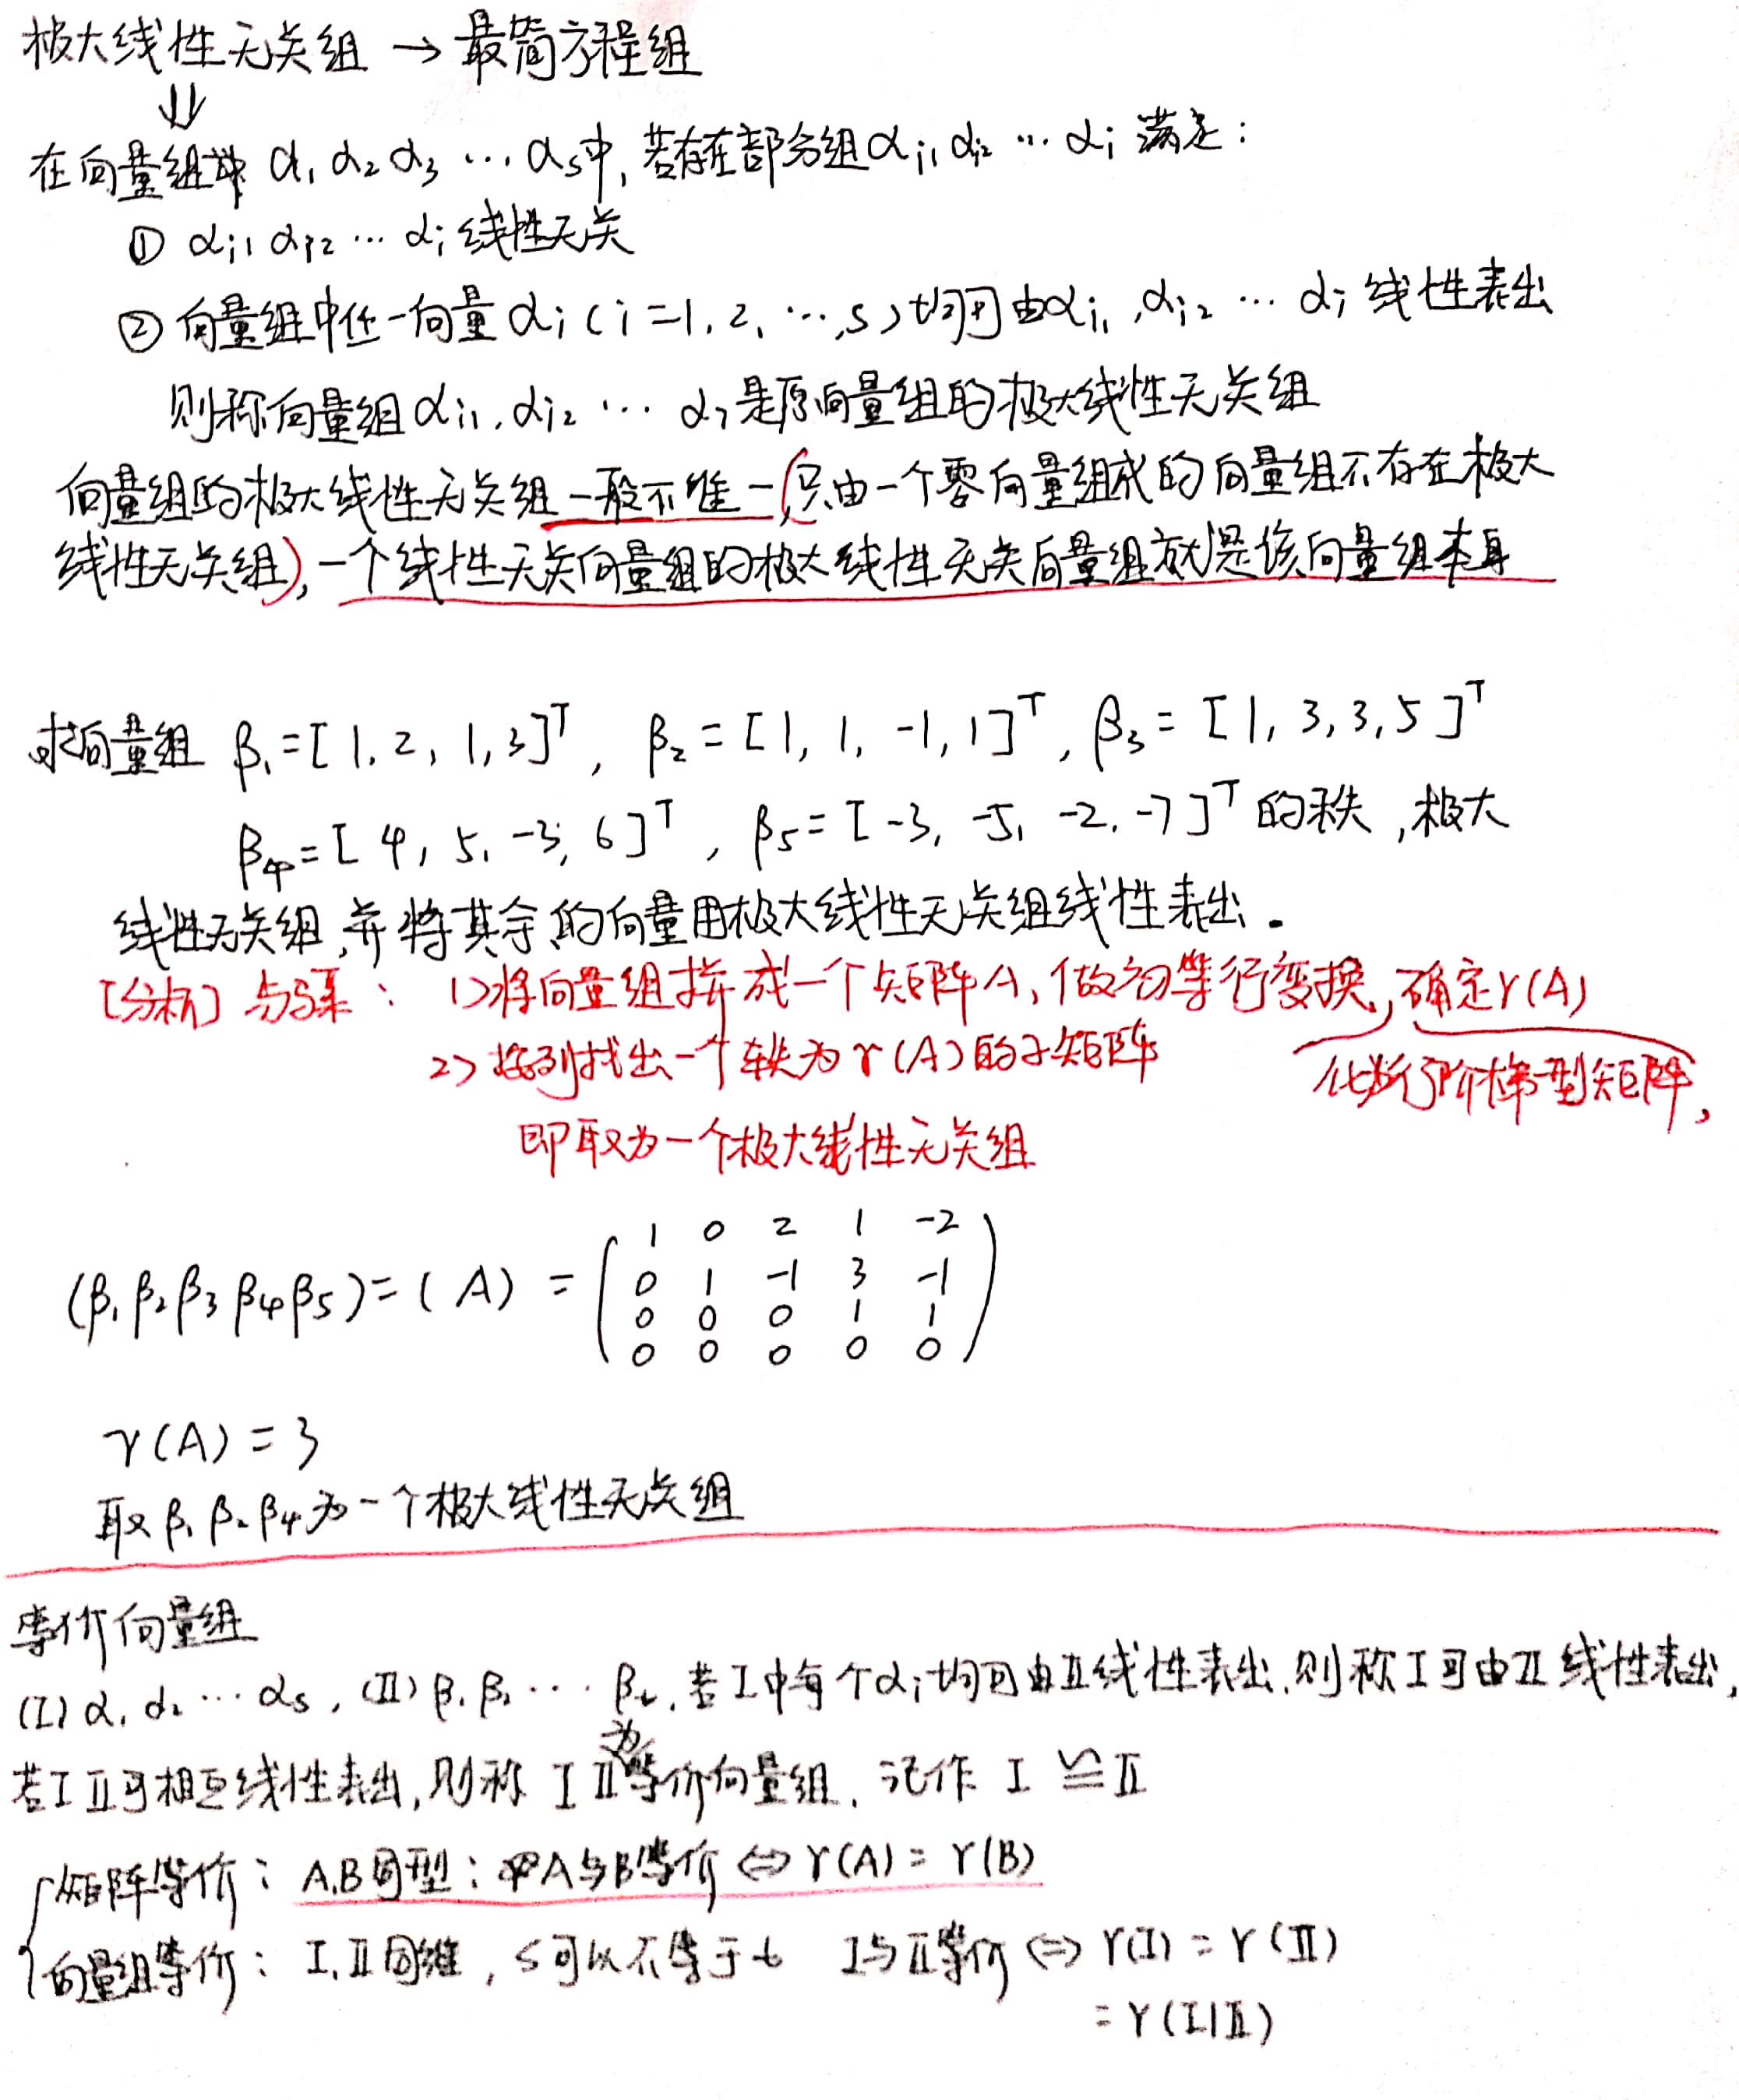 极大线性无关组 → 最简方程组
⇓
在向量组 α₁ α₂ α₃ … αₛ中, 若存在部分组 αᵢ₁ αᵢ₂ … αᵢ 满足:
① αᵢ₁ αᵢ₂ … αᵢ 线性无关
② 向量组中任一向量 αᵢ (i=1, 2, …, s) 均可由αᵢ₁, αᵢ₂ … αᵢ 线性表出
则称向量组 αᵢ₁, αᵢ₂ … αᵢ 是原向量组的极大线性无关组
向量组的极大线性无关组一般不唯一(只由一个零向量组成的向量组不存在极大
线性无关组), 一个线性无关向量组的极大线性无关向量组就是该向量组本身
求向量组 β₁=[1, 2, 1, 3]ᵀ, β₂=[1, 1, -1, 1]ᵀ, β₃=[1, 3, 3, 5]ᵀ
β₄=[4, 5, -3, 6]ᵀ, β₅=[-3, -5, -2, -7]ᵀ 的秩, 极大
线性无关组, 并将其余的向量用极大线性无关组线性表出.
[分析] 步骤: 1>将向量组拼成一个矩阵A, 做初等行变换, 确定r(A)
2> 按列找出一个秩为r(A)的子矩阵
化为行阶梯型矩阵,
即取为一个极大线性无关组
(β₁ β₂ β₃ β₄ β₅) = (A) =
1 0 2 1 -2
0 1 -1 3 -1
0 0 0 1 1
0 0 0 0 0
r(A) = 3
取 β₁ β₂ β₄ 为一个极大线性无关组
等价向量组
(I) α₁ α₂ … αₛ, (II) β₁ β₂ … βₜ, 若I中每个αᵢ均可由II线性表出, 则称I可由II线性表出,
若I II可相互线性表出, 则称 I II为等价向量组, 记作 I ≌ II
矩阵等价: A,B同型: A与B等价 ⇔ r(A) = r(B)
向量组等价: I,II同维, s可以不等于t I与II等价 ⇔ r(I) = r(II)
= r(I|II)